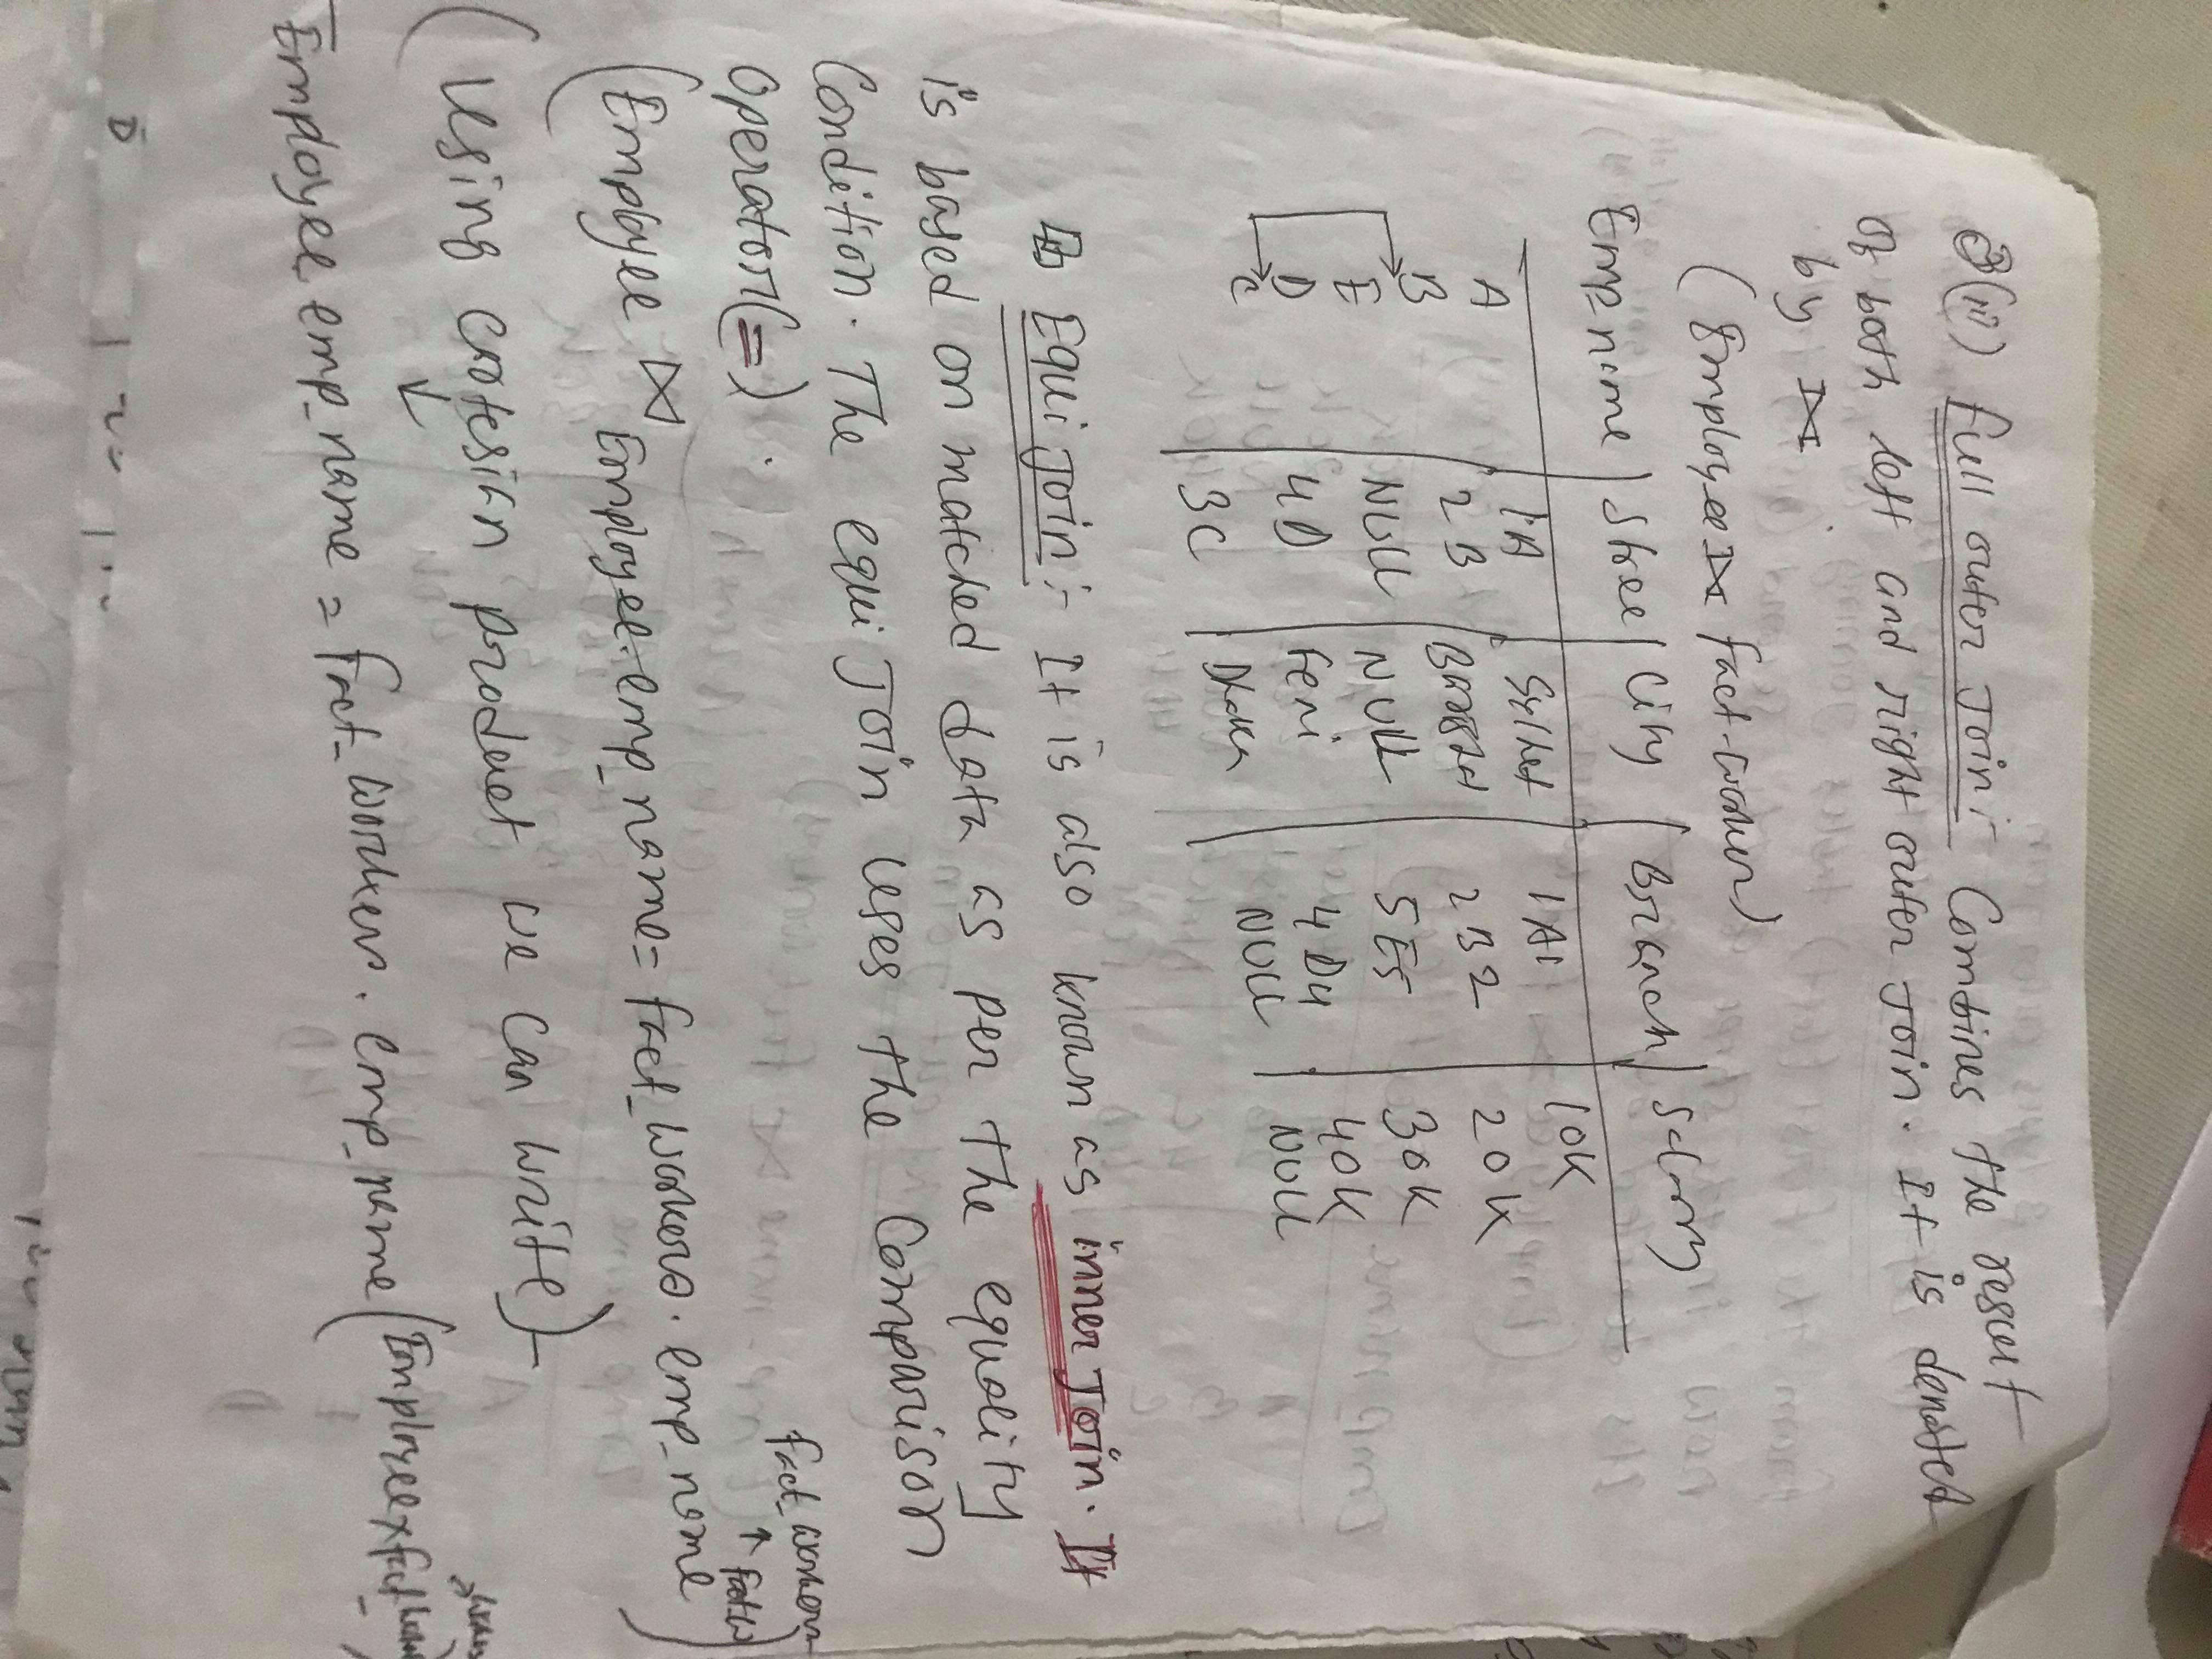 3(iii) Full outer Join:- Combines the result
of both left and right outer Join. It is denoted
by ⟗
(Employee ⟗ fact-worker)
Emp_name | Stree | City | Branch | Salary
A | 1A | Sylhet | 1A1 | 10K
B | 2B | Barishal | 2B2 | 20K
E | NULL | NULL | 5E5 | 30K
D | 4D | Feni | 4D4 | 40K
C | 3C | Dhaka | NULL | NULL
Equi Join:- It is also known as inner Join. It
is based on matched data as per the equality
Condition. The equi Join uses the Comparison
Operator(=).
fact_workers
↑ fact_w
(Employee ⋈ Employee.emp_name= fact_workers.emp_name)
(Using cartesian product we can write)-
↓
Employee emp_name = fact_workers.emp_name(Employee×fact_
D